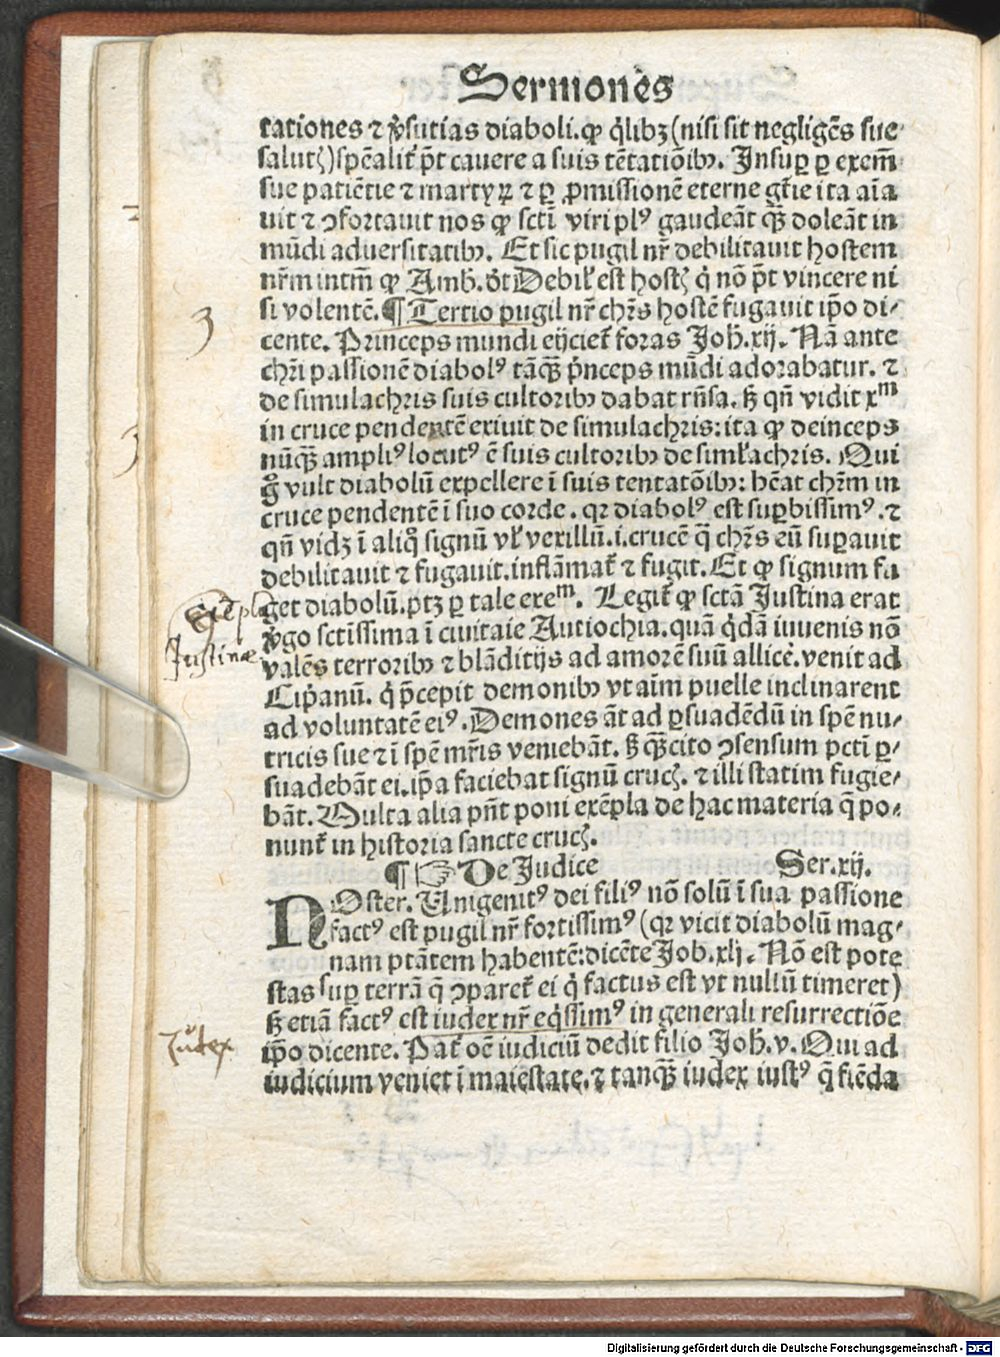 Sermones
tationes ⁊ v̓sutias diaboli. ꝙ q̓libꝫ (nisi sit negligēs sue
salutꝭ) spēalit̄ p̄t cauere a suis tētatiōibꝰ. Insuꝑ ꝑ exem̄
sue patiētie ⁊ martyrꝝ ⁊ ꝑ ꝓmissionē eterne gl̄ie ita aīa
uit ⁊ ꝯfortauit nos ꝙ sctī viri plꝰ gaudeāt qꝫ̄ doleāt in
mūdi aduersitatibꝰ. Et sic pugil nr̄ debilitauit hostem
nr̄m intm̄ ꝙ Amb. d̓t Debil̓ est hostꝭ q̓ nō p̄t vincere ni
si volentē. ¶ Tertio pugil nr̄ chr̄s hostē fugauit ip̄o di⸗
cente. Princeps mundi eijciet̄ foras Joh̄. xij. Nā ante
chr̄i passionē diabolꝰ tāqꝫ̄ p̓nceps mūdi adorabatur. ⁊
de simulachris suis cultoribꝰ dabat rn̄sa. sꝫ qn̄ vidit xᵐ
in cruce pendentē exiuit de simulachris: ita ꝙ deinceps
nūqꝫ̄ ampliꝰ locutꝰ ē suis cultoribꝰ de siml̓achris. Qui
gͦ vult diabolū expellere ī suis tentatōibꝰ: hēat chr̄m in
cruce pendentē ī suo corde. qr diabolꝰ est suꝑbissimꝰ. ⁊
qn̄ vidꝫ ī aliqͦ signū vl̓ vexillū .i. crucē q̄ chr̄s eū suꝑauit
debilitauit ⁊ fugauit. inflāmat̄ ⁊ fugit. Et ꝙ signum fu
get diabolū. ptꝫ ꝑ tale exeᵐ. Legit̄ ꝙ sctā Justina erat
v̓go sctīssima ī ciuitate Antiochia. quā q̓dā iuuenis nō
valēs terroribꝰ ⁊ blāditijs ad amorē suū allicē. venit ad
Cip̓anū. q̓ p̄cepit demonibꝰ vt aīm puelle inclinarent
ad voluntatē eiꝰ. Demones āt ad ꝑsuadēdū in spē nu⸗
tricis sue ⁊ ī spē mr̄is veniebāt. sꝫ qꝫ̄cito ꝯsensum pctī ꝑ⸗
suadebāt ei. ip̄a faciebat signū crucꝭ. ⁊ illi statim fugie⸗
bāt. Multa alia pn̄t poni exēpla de hac materia q̄ po⸗
nunt̄ in historia sancte crucꝭ.
¶ ☞ De Judice Ser. xij.
NOster. Unigenitꝰ dei filiꝰ nō solū ī sua passione
factꝰ est pugil nr̄ fortissimꝰ (qr vicit diabolū mag⸗
nam ptātem habentē: dicēte Job. xlj. Nō est pote
stas suꝑ terrā q̄ ꝯparet̄ ei q̓ factus est vt nullū timeret)
sꝫ etiā factꝰ est iudex nr̄ eq̓ssimꝰ in generali resurrectiōe
ip̄o dicente. Pat̄ oē iudiciū dedit filio Joh̄. v. Qui ad
iudicium veniet ī maiestate. ⁊ tanqꝫ̄ iudex iustꝰ q̄ fiēda
3
Exēpl
Justinæ
Judex